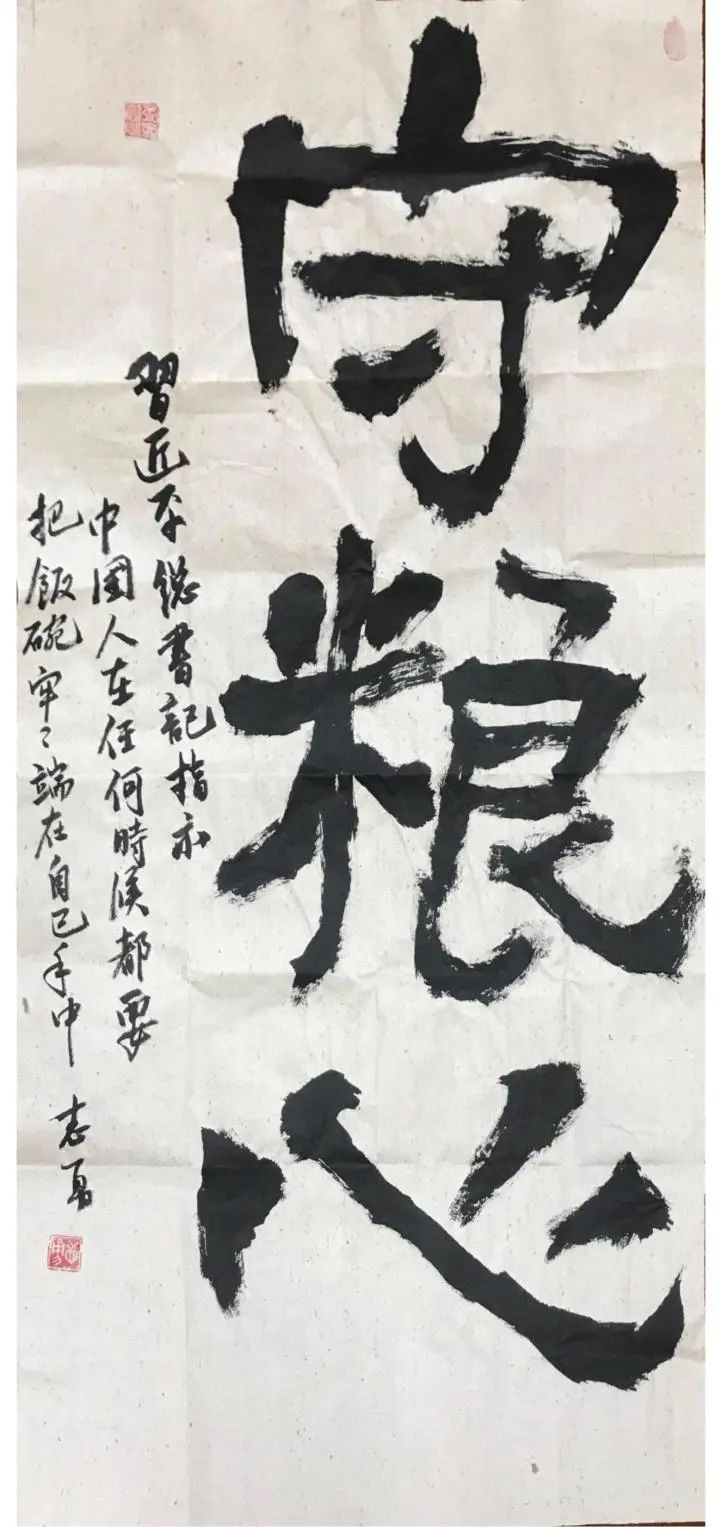 守粮心
習近平總書記指示
中國人在任何時候都要
把飯碗牢々端在自己手中
志勇